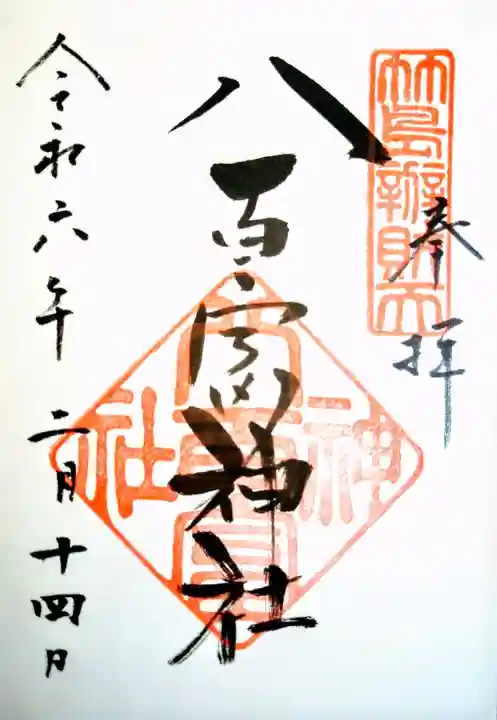 奉拝
竹島辦財天
八百富神社
八百富
神社
令和六年二月十四日